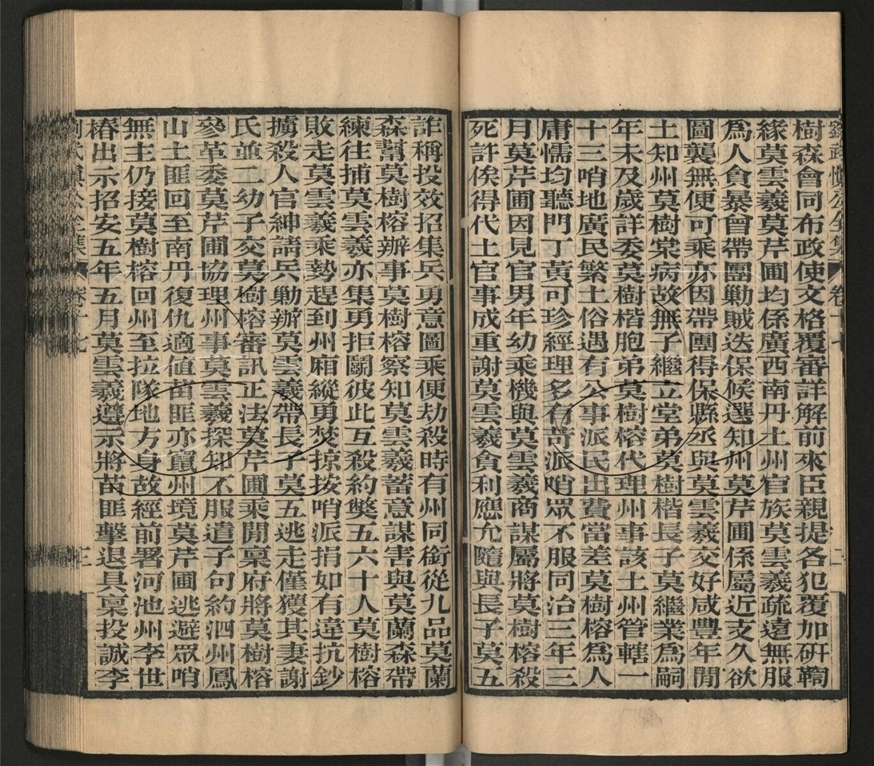 樹森會同布政使文格覆審詳解前來臣親提各犯覆加研鞫
緣莫雲羲莫芹圃均係廣西南丹土州官族莫雲羲疏遠無服
爲人貪暴曾帶團勦賊迭保候選知州莫芹圃係屬近支久欲
圖襲無便可乘亦因帶團得保縣丞與莫雲羲交好咸豐年閒
土知州莫樹棠病故無子繼立堂弟莫樹楷長子莫繼業爲嗣
年未及歲詳委莫樹楷胞弟莫樹榕代理州事該土州管轄一
十三哨地廣民繁土俗遇有公事派民出費當差莫樹榕爲人
庸懦均聽門丁黃可珍經理多有苛派哨眾不服同治三年三
月莫芹圃因見官男年幼乘機與莫雲羲商謀屬將莫樹榕殺
死許俟得代土官事成重謝莫雲羲貪利應允隨與長子莫五
詐稱投效招集兵勇意圖乘便劫殺時有州同銜從九品莫蘭
森幫莫樹榕辦事莫樹榕察知莫雲羲蓄意謀害與莫蘭森帶
練往捕莫雲羲亦集勇拒鬬彼此互殺約斃五六十人莫樹榕
敗走莫雲羲乘勢趕到州廂縱勇焚掠按哨派捐如有違抗鈔
擄殺人官紳請兵勦辦莫雲羲帶長子莫五逃走僅獲其妻謝
氏並二幼子交莫樹榕審訊正法莫芹圃乘閒稟府將莫樹榕
參革委莫芹圃協理州事莫雲羲探知不服遣子句約泗州鳳
山土匪回至南丹復仇適値苗匪亦竄州境莫芹圃逃避眾哨
無主仍接莫樹榕回州至拉隊地方身故經前署河池州李世
椿出示招安五年五月莫雲羲遵示將苗匪擊退具稟投誠李